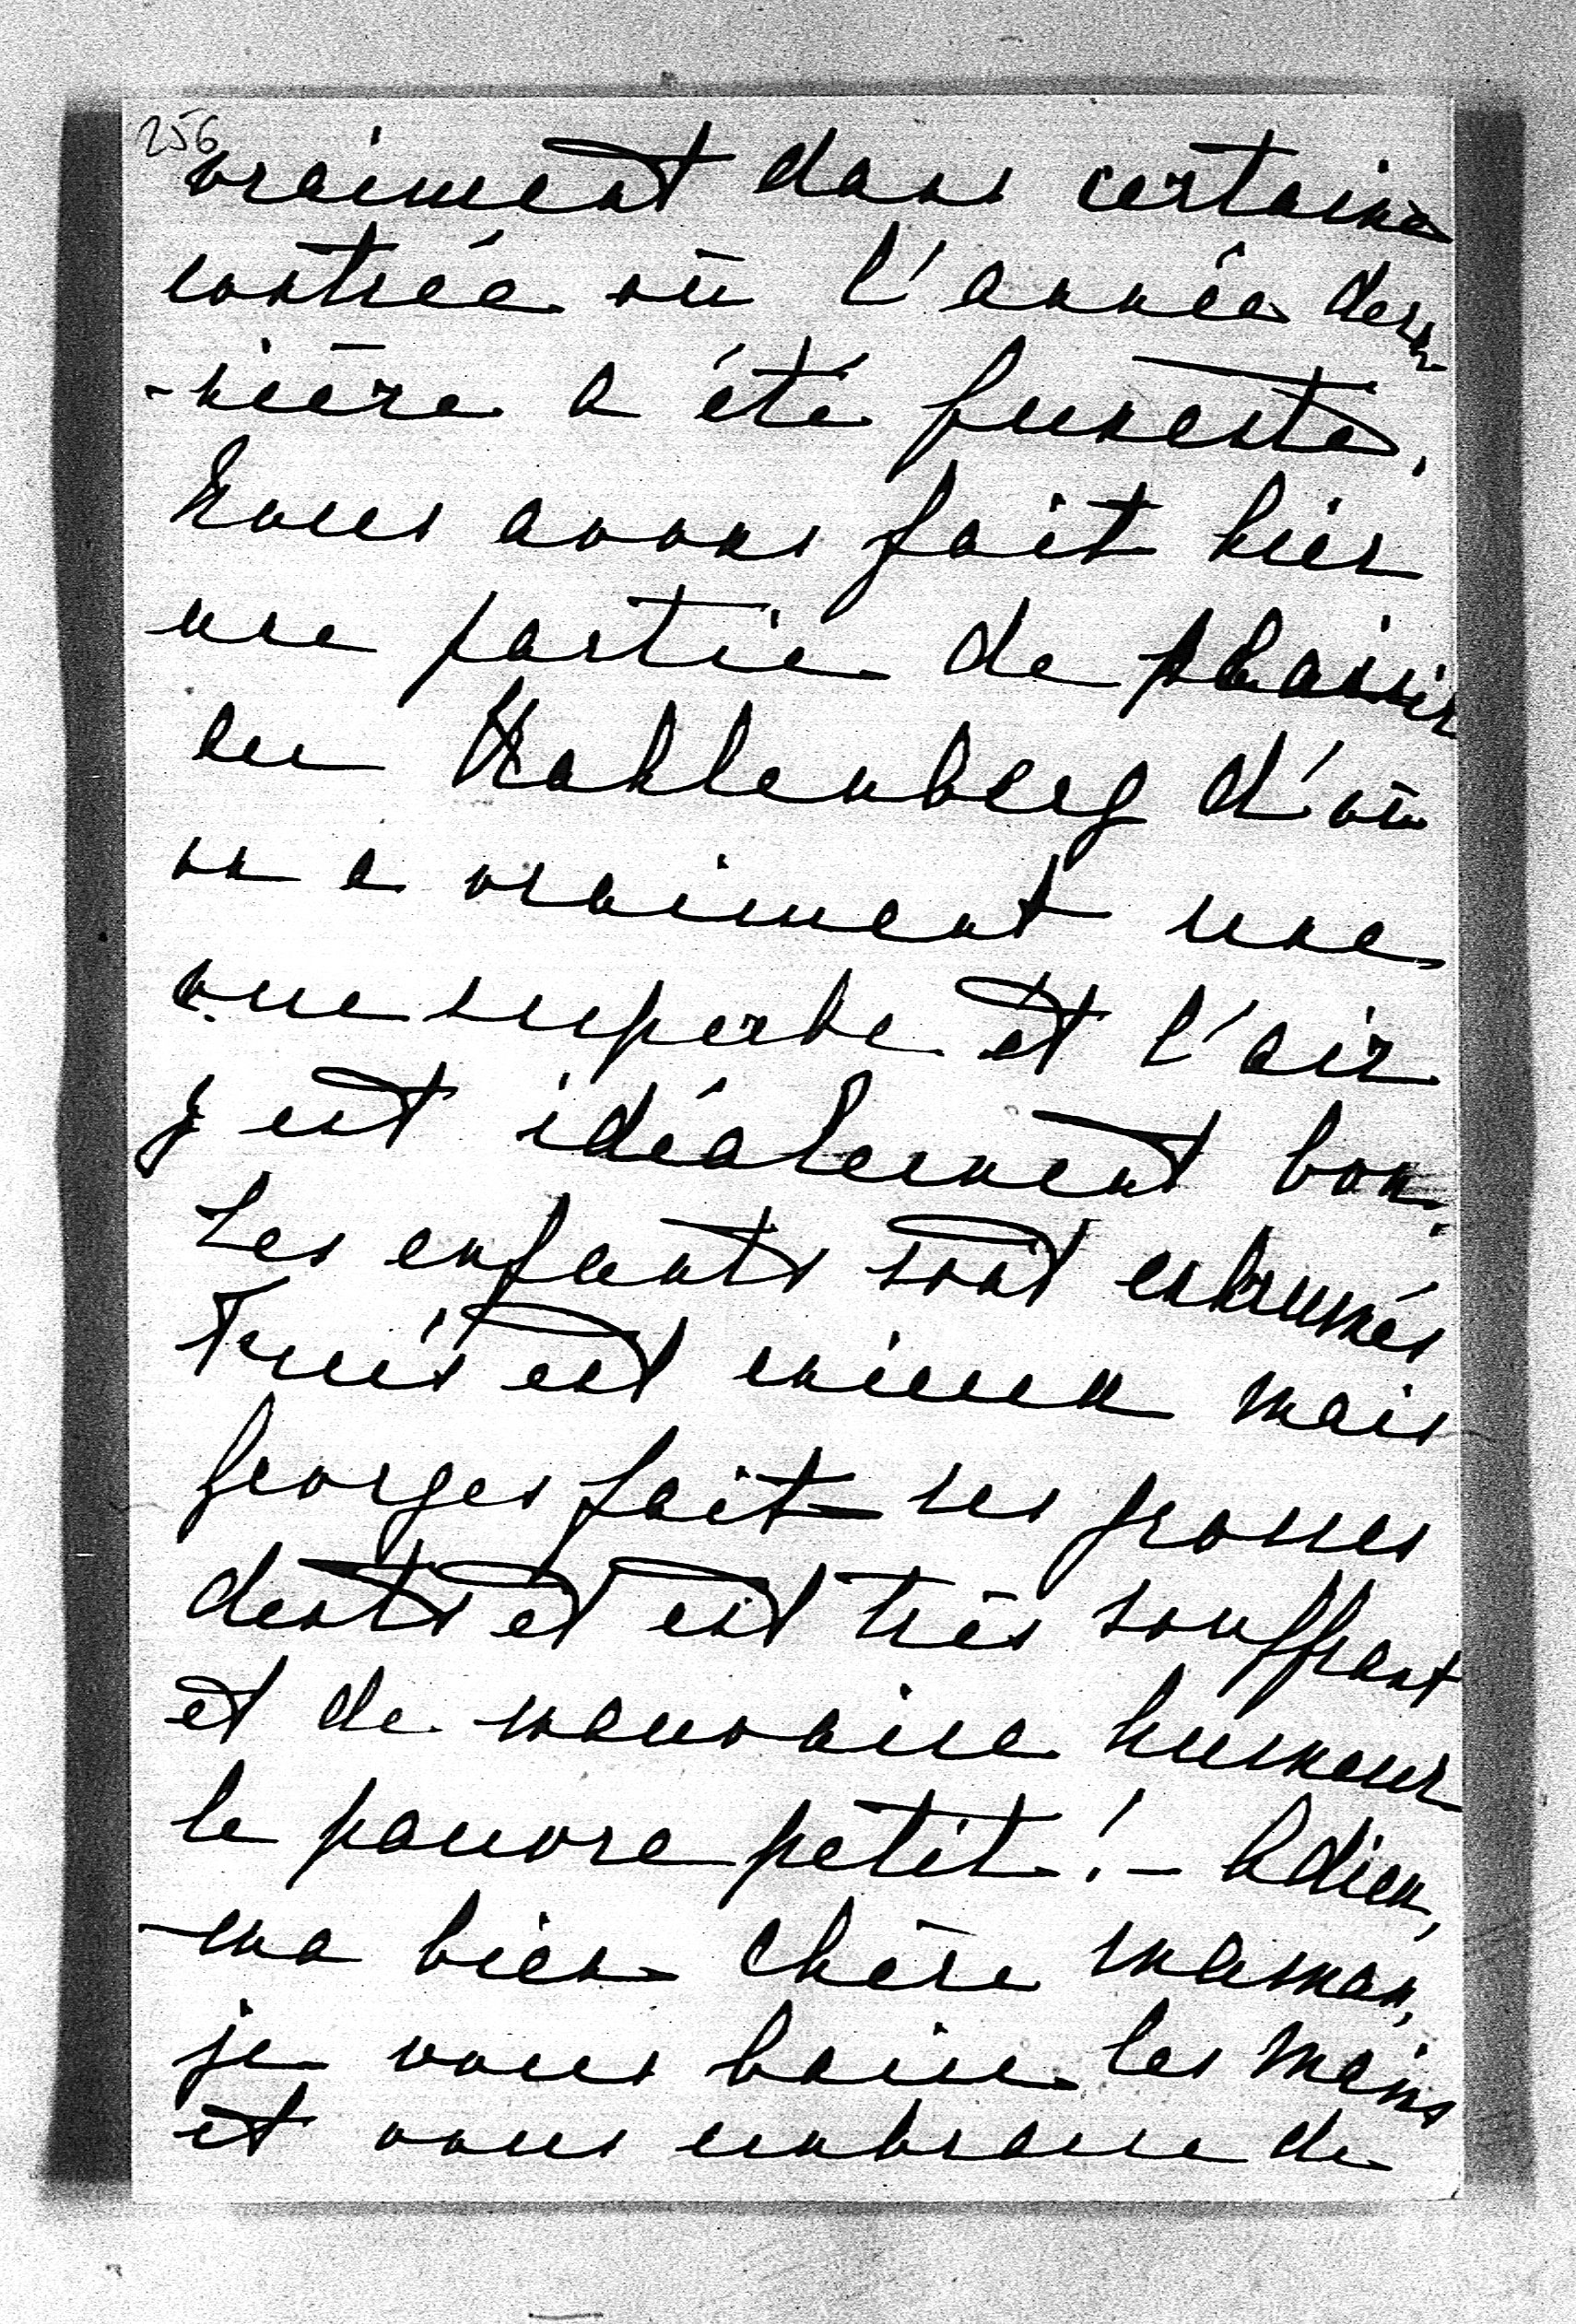 256
vraiment dans certaine
contrée où l'année der
-nière a été funeste.
Nous avons fait hier
une partie de plaisir
au Kahlenberg d'où
on a vraiment une
vue superbe et l'air
y est idéalement bon.
Les enfants sont enrhumés
est mieux mais
Georges fait ses grosses
dents et est très souffrant
et de mauvaise humeur
le pauvre petit! – Adieu,
ma bien chère maman,
je vous baise les mains
et vous embrasse de